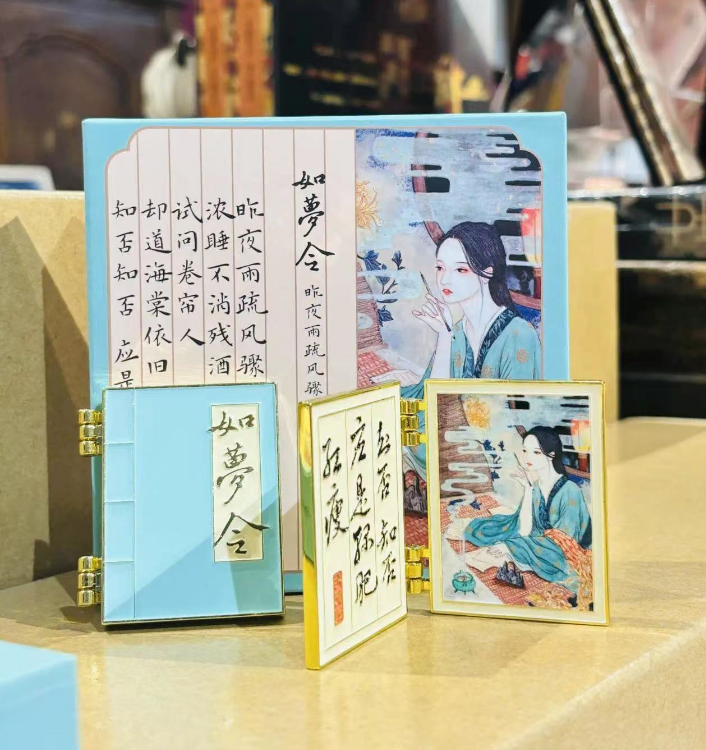 如夢令
昨夜雨疏风骤
昨夜雨疏风骤
浓睡不消残酒
试问卷帘人
却道海棠依旧
知否知否 应是
如夢令
知否 知否
应是绿肥
红瘦